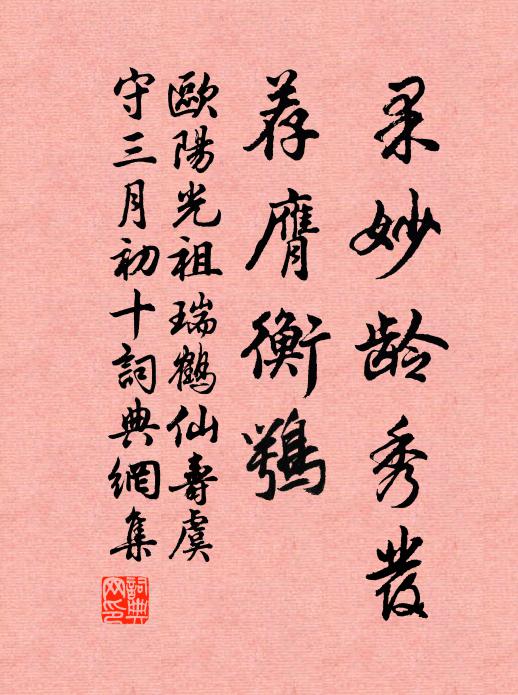 果妙龄秀發
荐膺衡鶚
歐陽光祖瑞鶴仙壽虞
守三月初十詞典網集